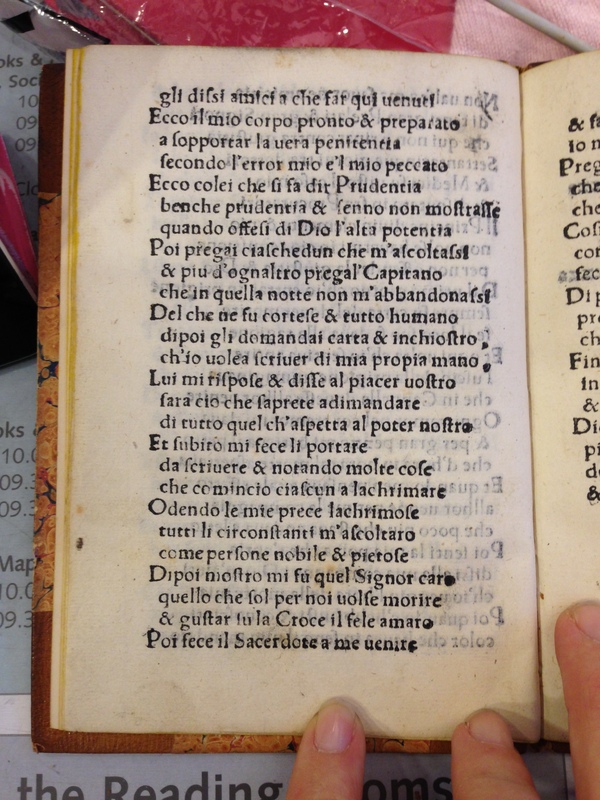 oks &
. Soci
10
09
09
Clo
gli dissi amici a che far qui uenuti
Ecco il mio corpo pronto & preparato
a sopportar la uera penitentia
secondo l'error mio e'l mio peccato
Ecco colei che si fa dir Prudentia
benche prudentia & senno non mostrasse
quando offesi di Dio l'alta potentia
Poi pregai ciaschedun che m'ascoltassi
& piu d'ognaltro pregal'Capitano
che in quella notte non m'abbandonassi
Del che ne fu cortese & tutto humano
dipoi gli domandai carta & inchiostro,
ch'io uolea scriuer di mia propia mano,
Lui mi rispose & disse al piacer uostro
sara cio che saprete adimandare
di tutto quel ch'aspetta al poter nostro
Et subito mi fece li portare
da scriuere & notando molte cose
che comincio ciascun a lachrimare
Odendo le mie prece lachrimose
tutti li circonstanti m'ascoltaro
come persone nobile & pietose
Dipoi mostro mi fu quel Signor caro
quello che sol per noi uolse morire
& gustar su la Croce il fele amaro
Poi fece il Sacerdote a me uenire
& fa
io m
Preg
che
che
Cosi
cor
fec
Di p
pre
ch
Fin
in
&
Dio
pi
de
&
oks &
10.0
09.3
09.3
Map
10.0
09.3
the Reading Rooms